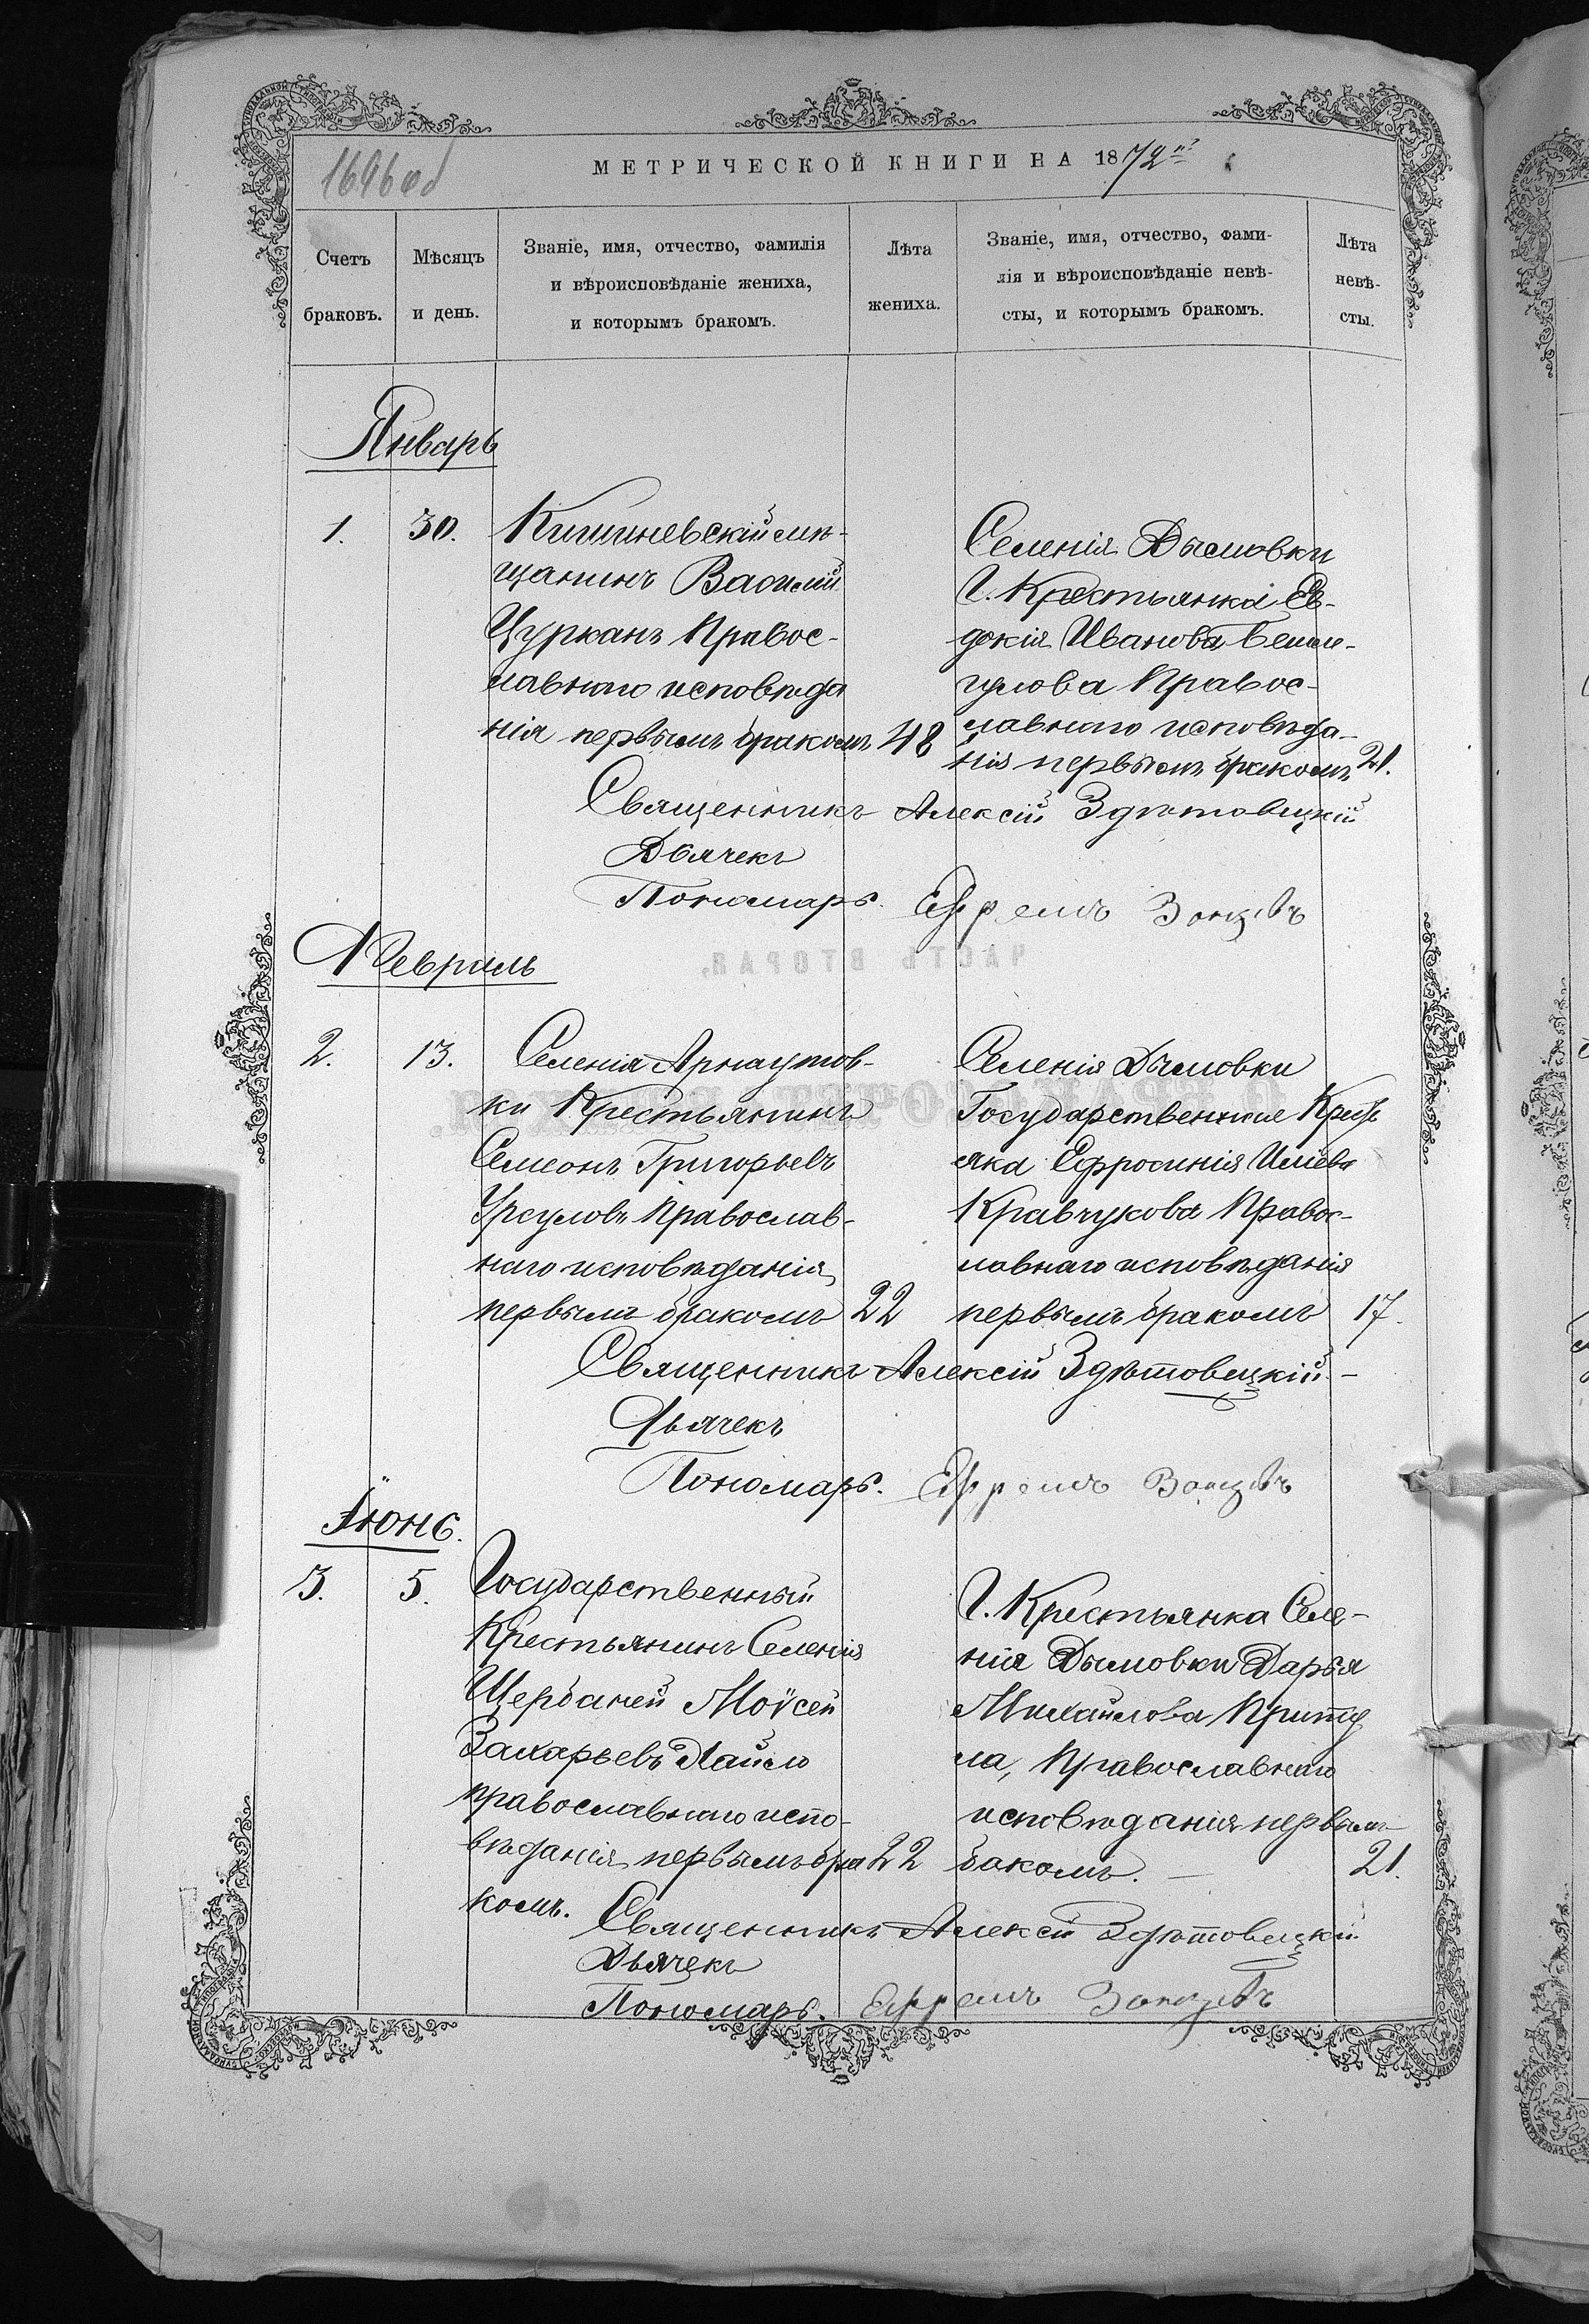 1696 об
МЕТРИЧЕСКОЙ КНИГИ НА 1872й
Счетъ браковъ.
Мѣсяцъ и день.
Званіе, имя, отчество, фамилія и вѣроисповѣданіе жениха, и которымъ бракомъ.
Лѣта жениха.
Званіе, имя, отчество, фами-
лія и вѣроисповѣданіе невѣ-
сты, и которымъ бракомъ.
Лѣта невѣ-
сты.
Январь
1. 30.
Кишиневскій мѣ-
щанинъ Василій
Цурканъ Правос-
лавнаго исповѣда
нія первымъ бракомъ 48
Селенія Дымовки
Г. Крестьянка Ев-
докія Иванова
гулова Правос-
лавнаго исповѣда-
нія первымъ бракомъ 21.
Священникъ Алексій Здѣтовецкій
Дьячекъ
Пономарь. Ефремъ
Февраль
2. 13.
Селенія Арнаутов-
ки Крестьянинъ
Семеонъ Григорьевъ
Урсуловъ Православ-
наго исповѣданія
первымъ бракомъ 22
Селенія Дымовки
Государственная Крест
янка Ефросинія Иліева
Кравчукова Правос-
лавнаго исповѣданія
первымъ бракомъ 17.
Священникъ Алексій Здѣтовецкій
Дьячекъ
Пономарь. Ефремъ
Іюнь.
3. 5.
Государственный
Крестьянинъ Селенія
Щербаней Моѵсей
Захарьевъ
православнаго испо-
вѣданія первымъ бра 22
комъ.
Г. Крестьянка Селе-
нія Дымовки Дарья
Михайлова Приту
ла, Православнаго
исповѣданія первымъ
бакомъ. 21.
Священникъ Алексій Здѣтовецкій
Дьячекъ
Пономарь. Ефремъ